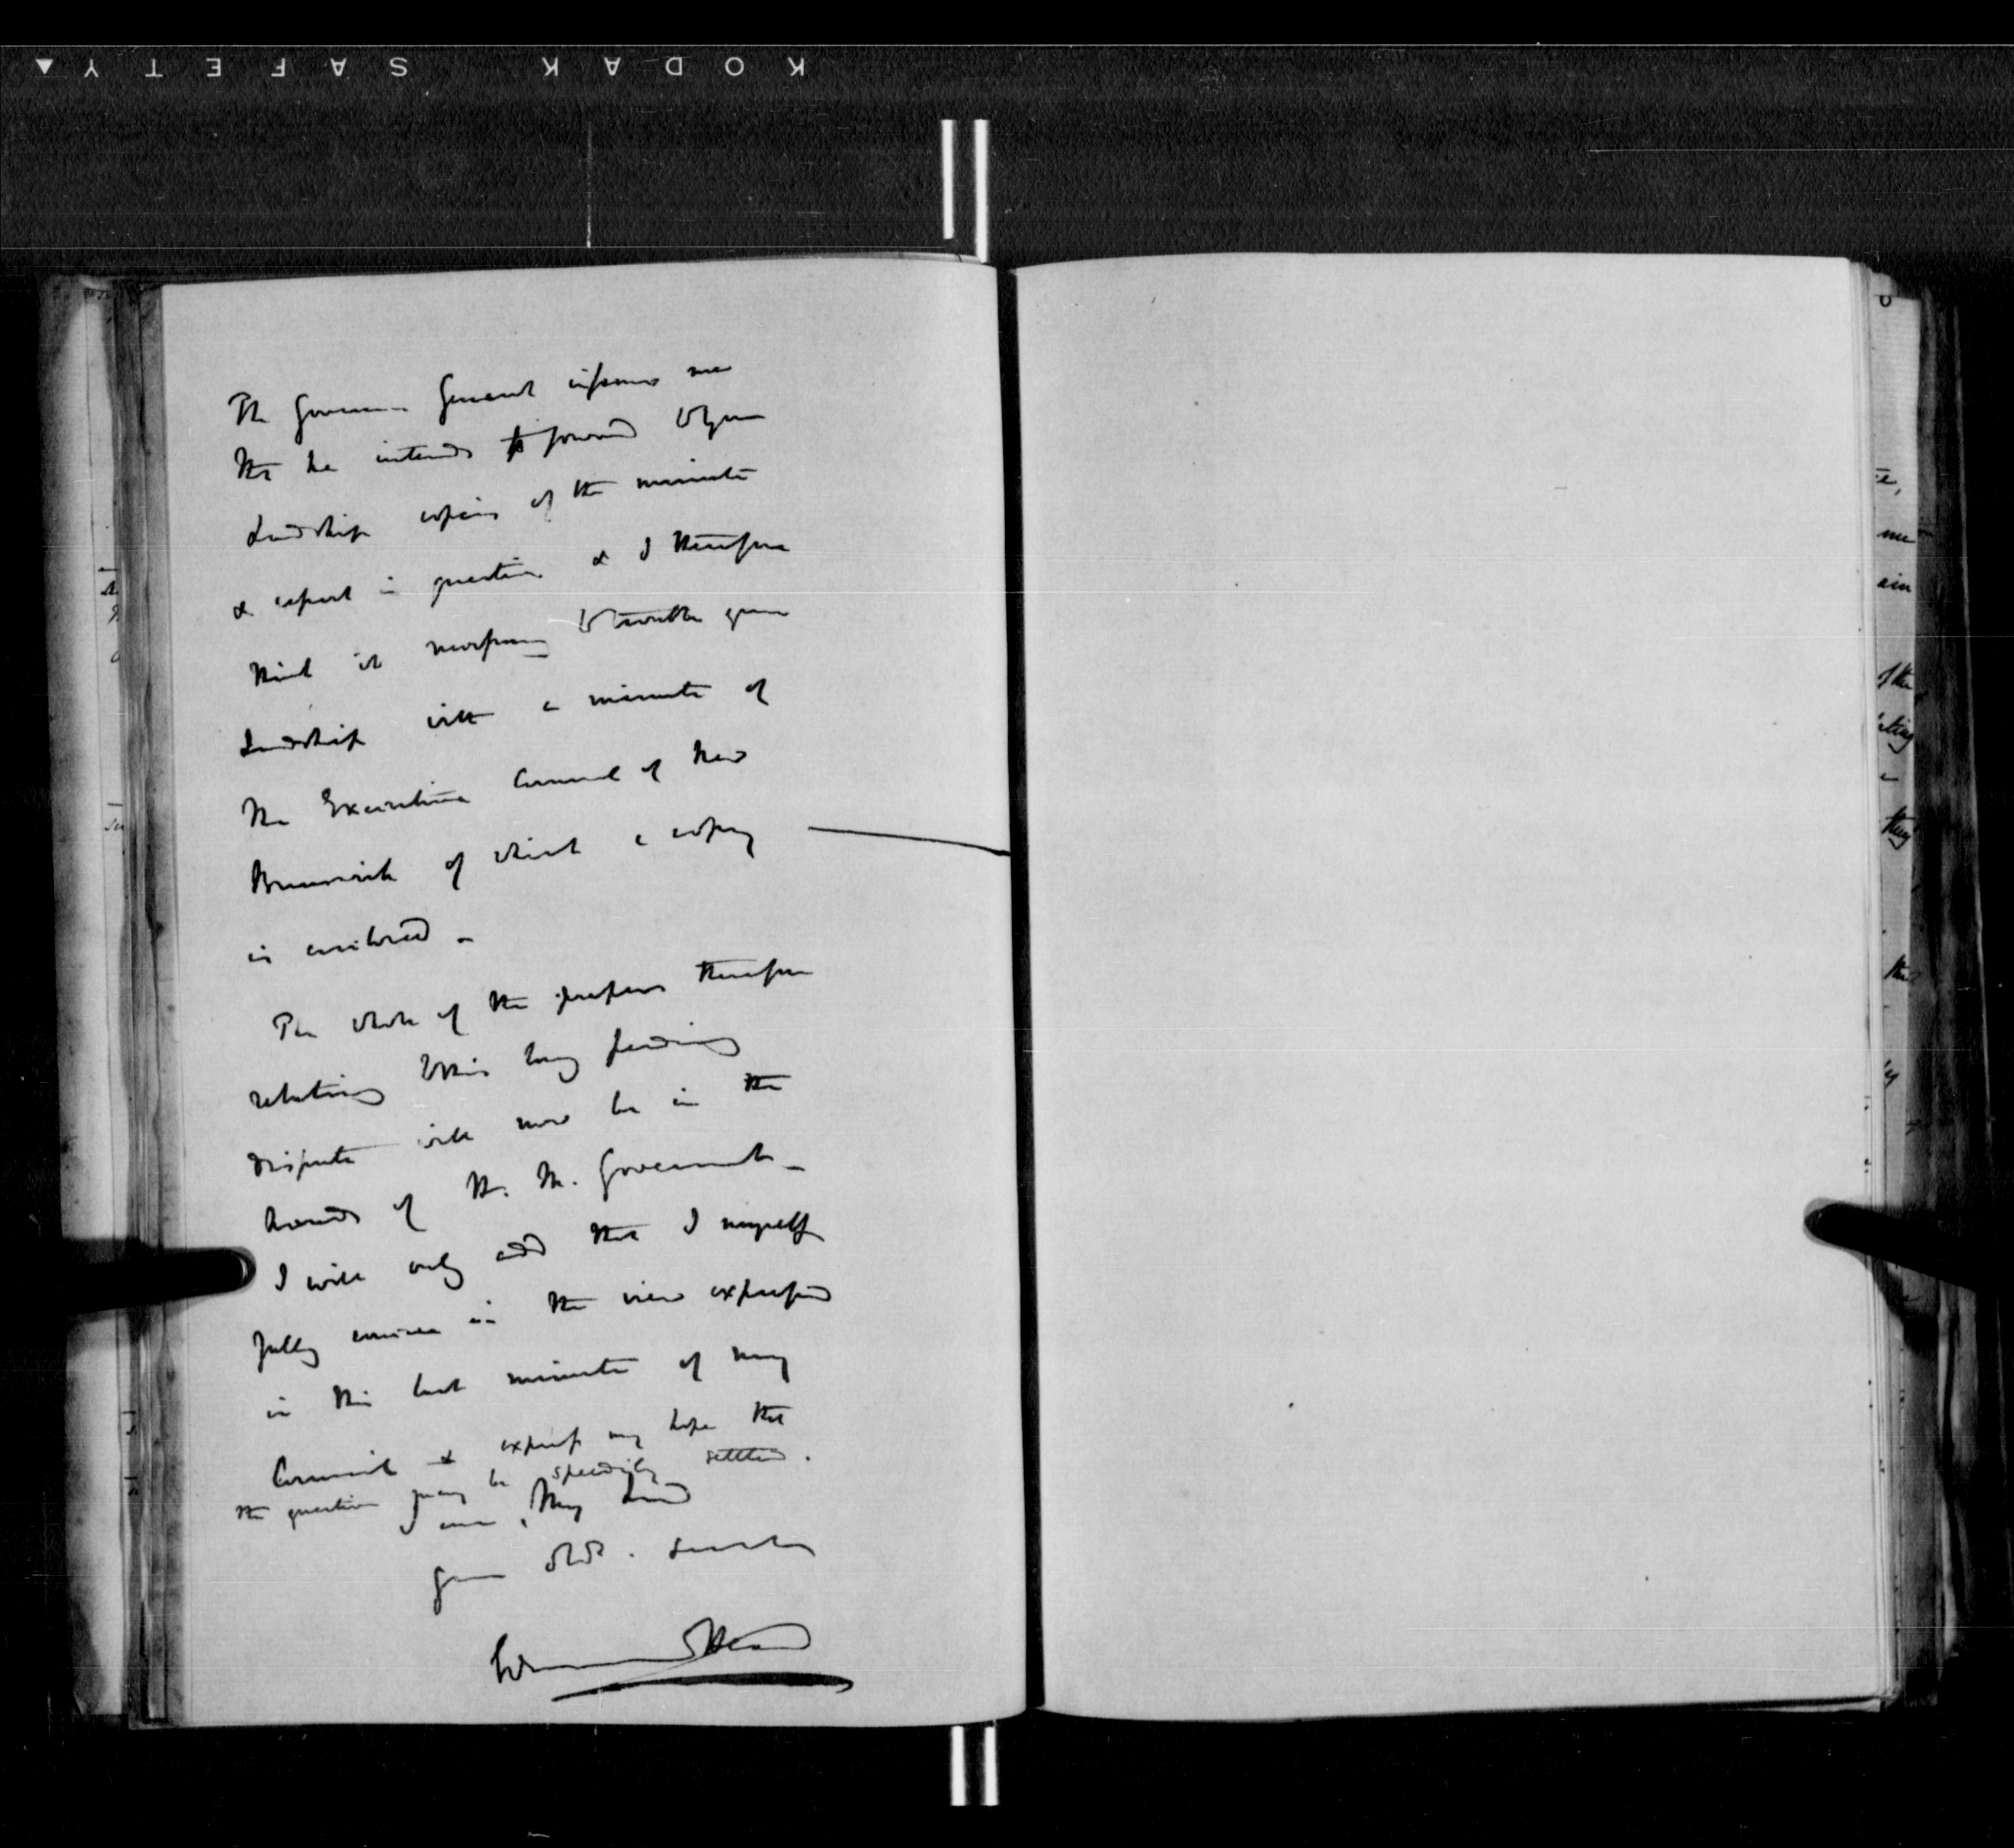 KODAK SAFETY
The Governor General informs me
that he intends to forward to your
Lordship copies of the minute
& report in question & I therefore
think it necessary to trouble your
Lordship with a minute of
the Executive Council of New
Brunswick of which a copy
is enclosed -
The whole of the papers therefore
relating to this long pending
dispute will now be in the
hands of H. M. Government -
I will only add that I myself
fully concur in the view expressed
in this last minute of my
Council & express my hope that
the question may be speedily settled.
I am, My Lord
your obdt. servant
Edmund Head
me
of the
they